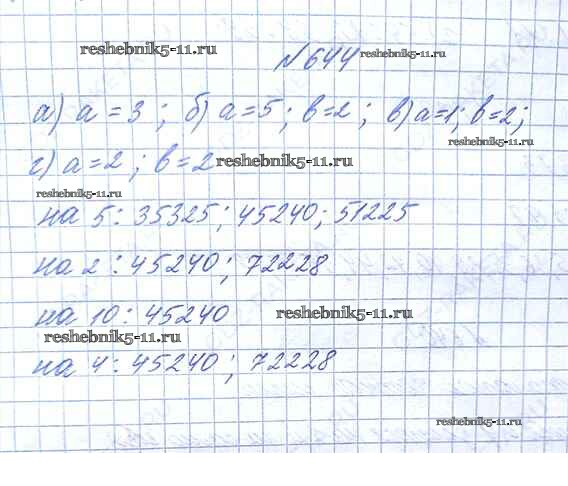 reshebnik5-11.ru
№644 reshebnik5-11.ru
а) а = 3 ; б) а = 5 ; в = 2 ; в) а = 1 ; в = 2 ;
reshebnik5-11.ru
г) а = 2 ; в = 2 reshebnik5-11.ru
reshebnik5-11.ru
на 5 : 35325 ; 45240 ; 51225
на 2 : 45240 ; 72228
на 10 : 45240 reshebnik5-11.ru
reshebnik5-11.ru
на 4 : 45240 ; 72228
reshebnik5-11.ru